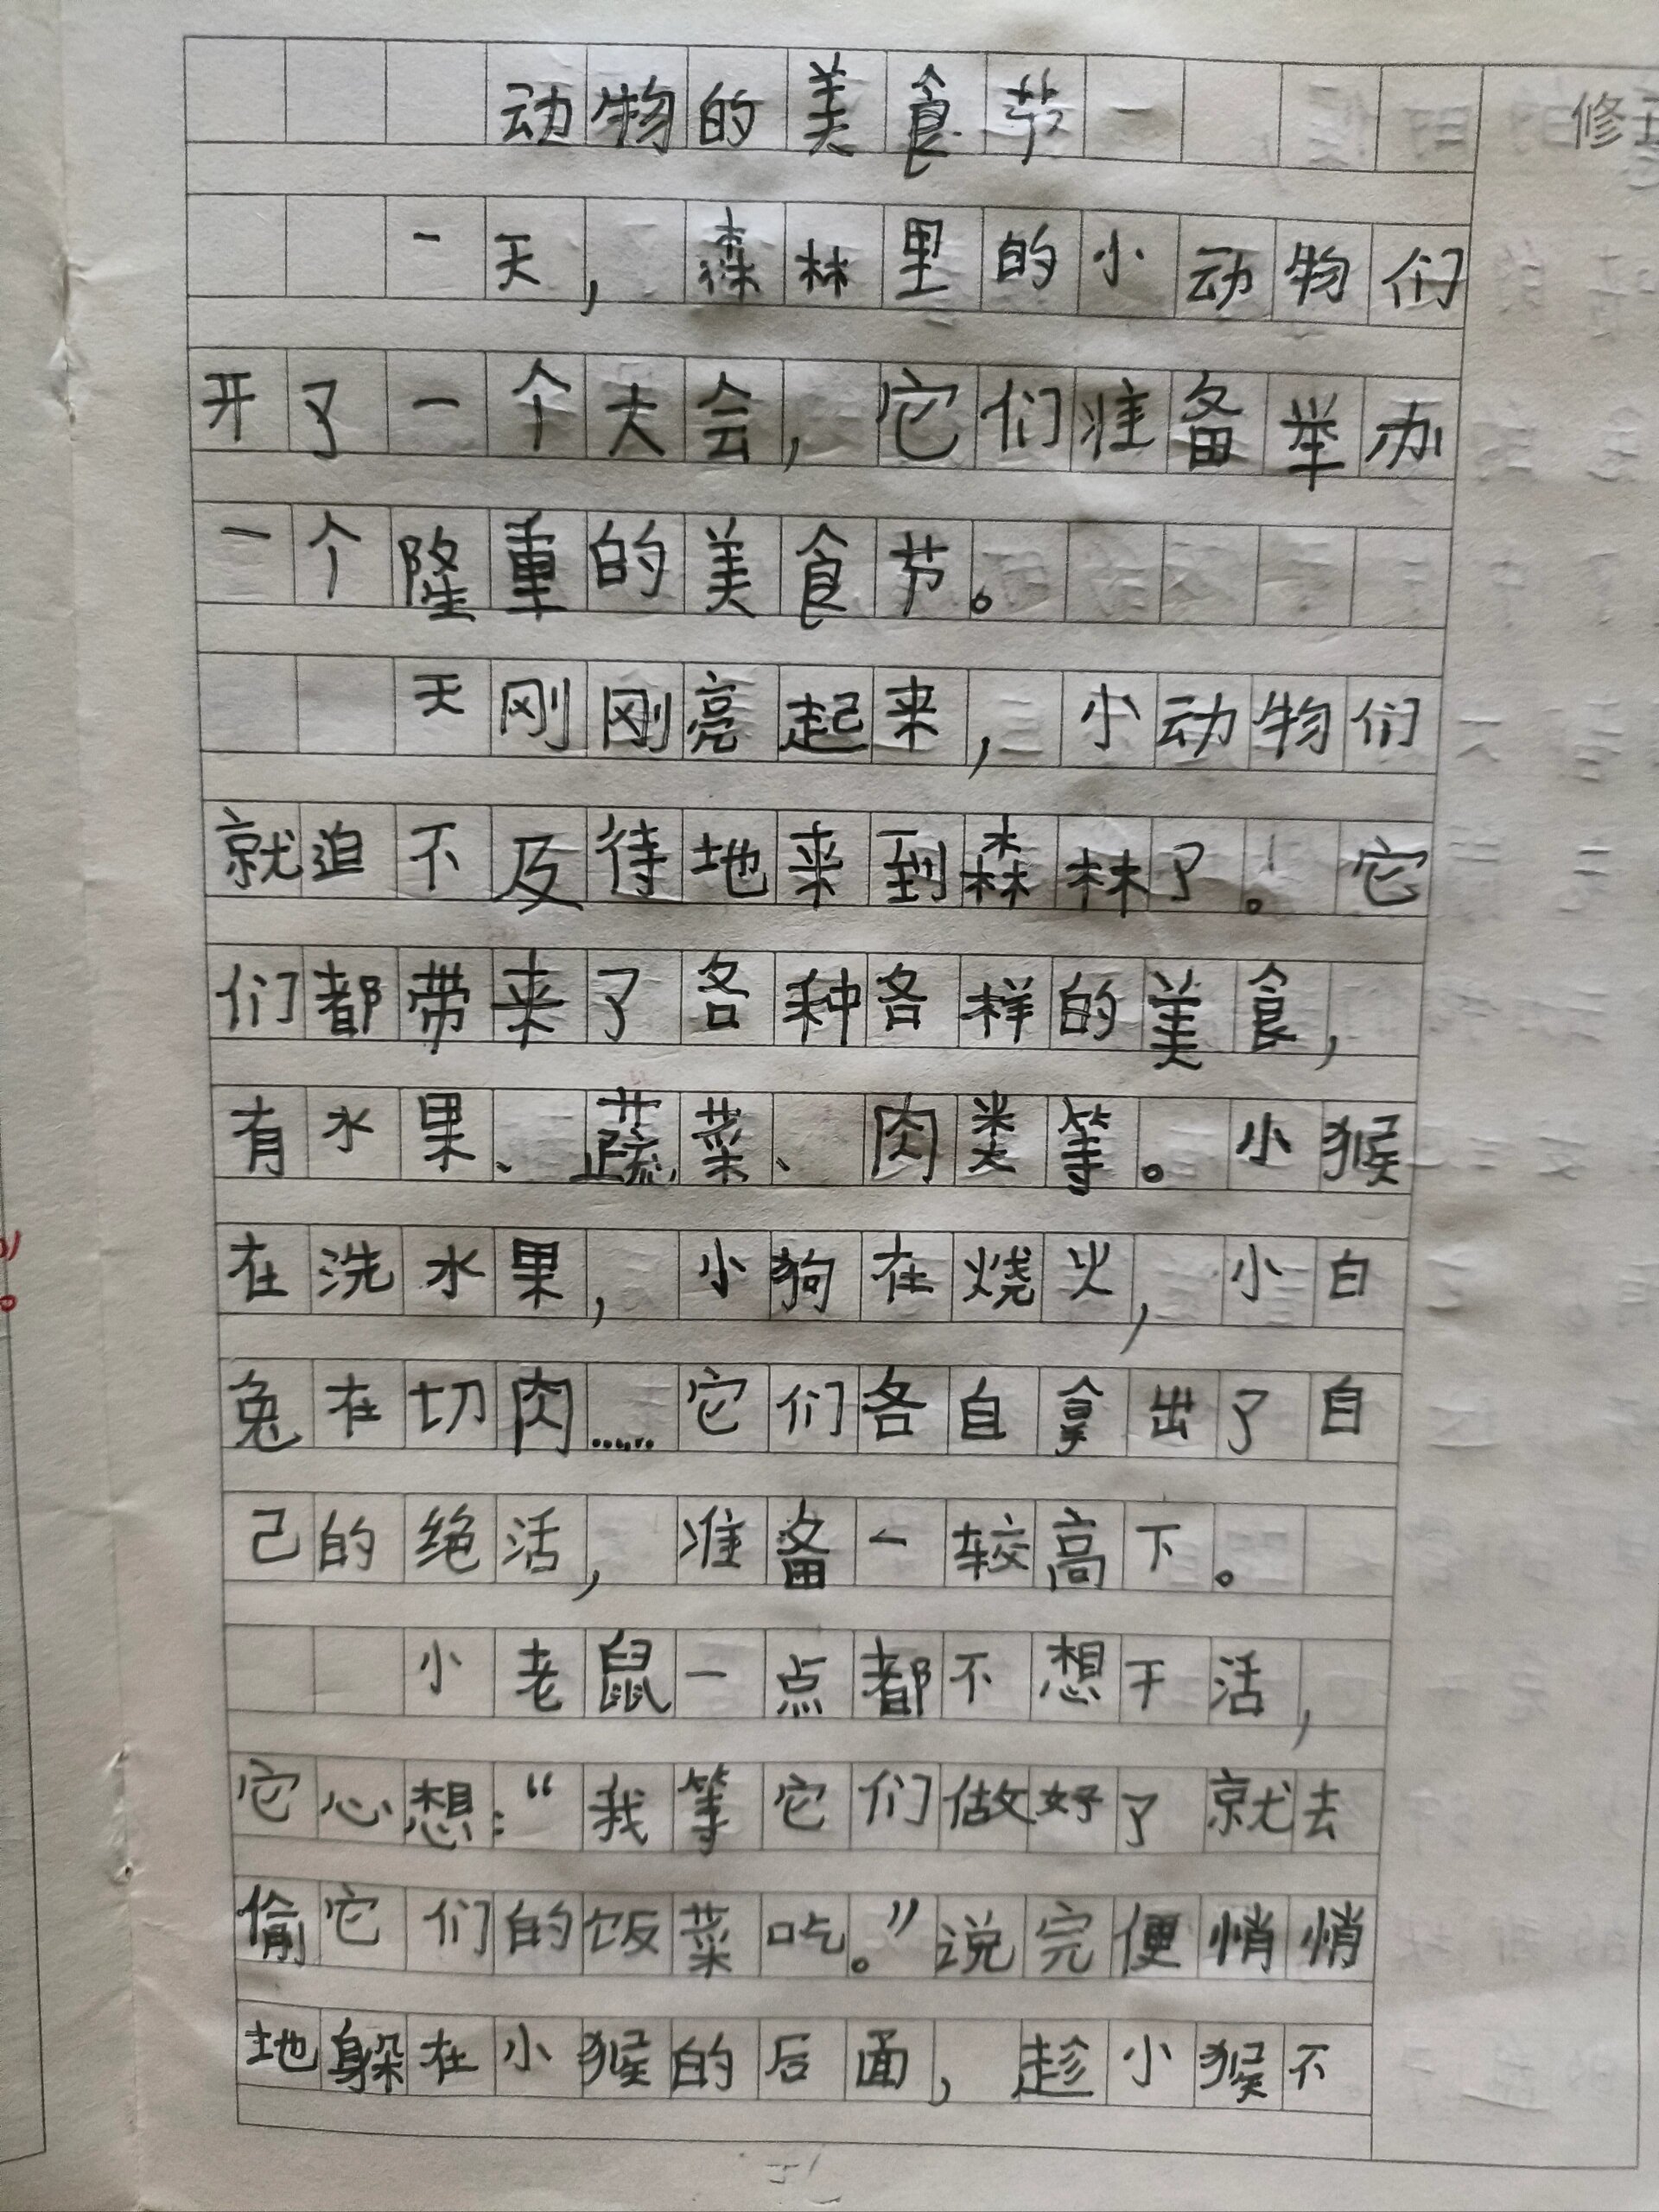 动物的美食节
修
一天，森林里的小动物们
开了一个大会，它们准备举办
一个隆重的美食节。
天刚刚亮起来，小动物们
就迫不及待地来到森林了。它
们都带来了各种各样的美食，
有水果、蔬菜、肉类等。小猴
在洗水果，小狗在烧火，小白
兔在切肉……它们各自拿出了自
己的绝活，准备一较高下。
小老鼠一点都不想干活，
它心想：“我等它们做好了就去
偷它们的饭菜吃。”说完便悄悄
地躲在小猴的后面，趁小猴不